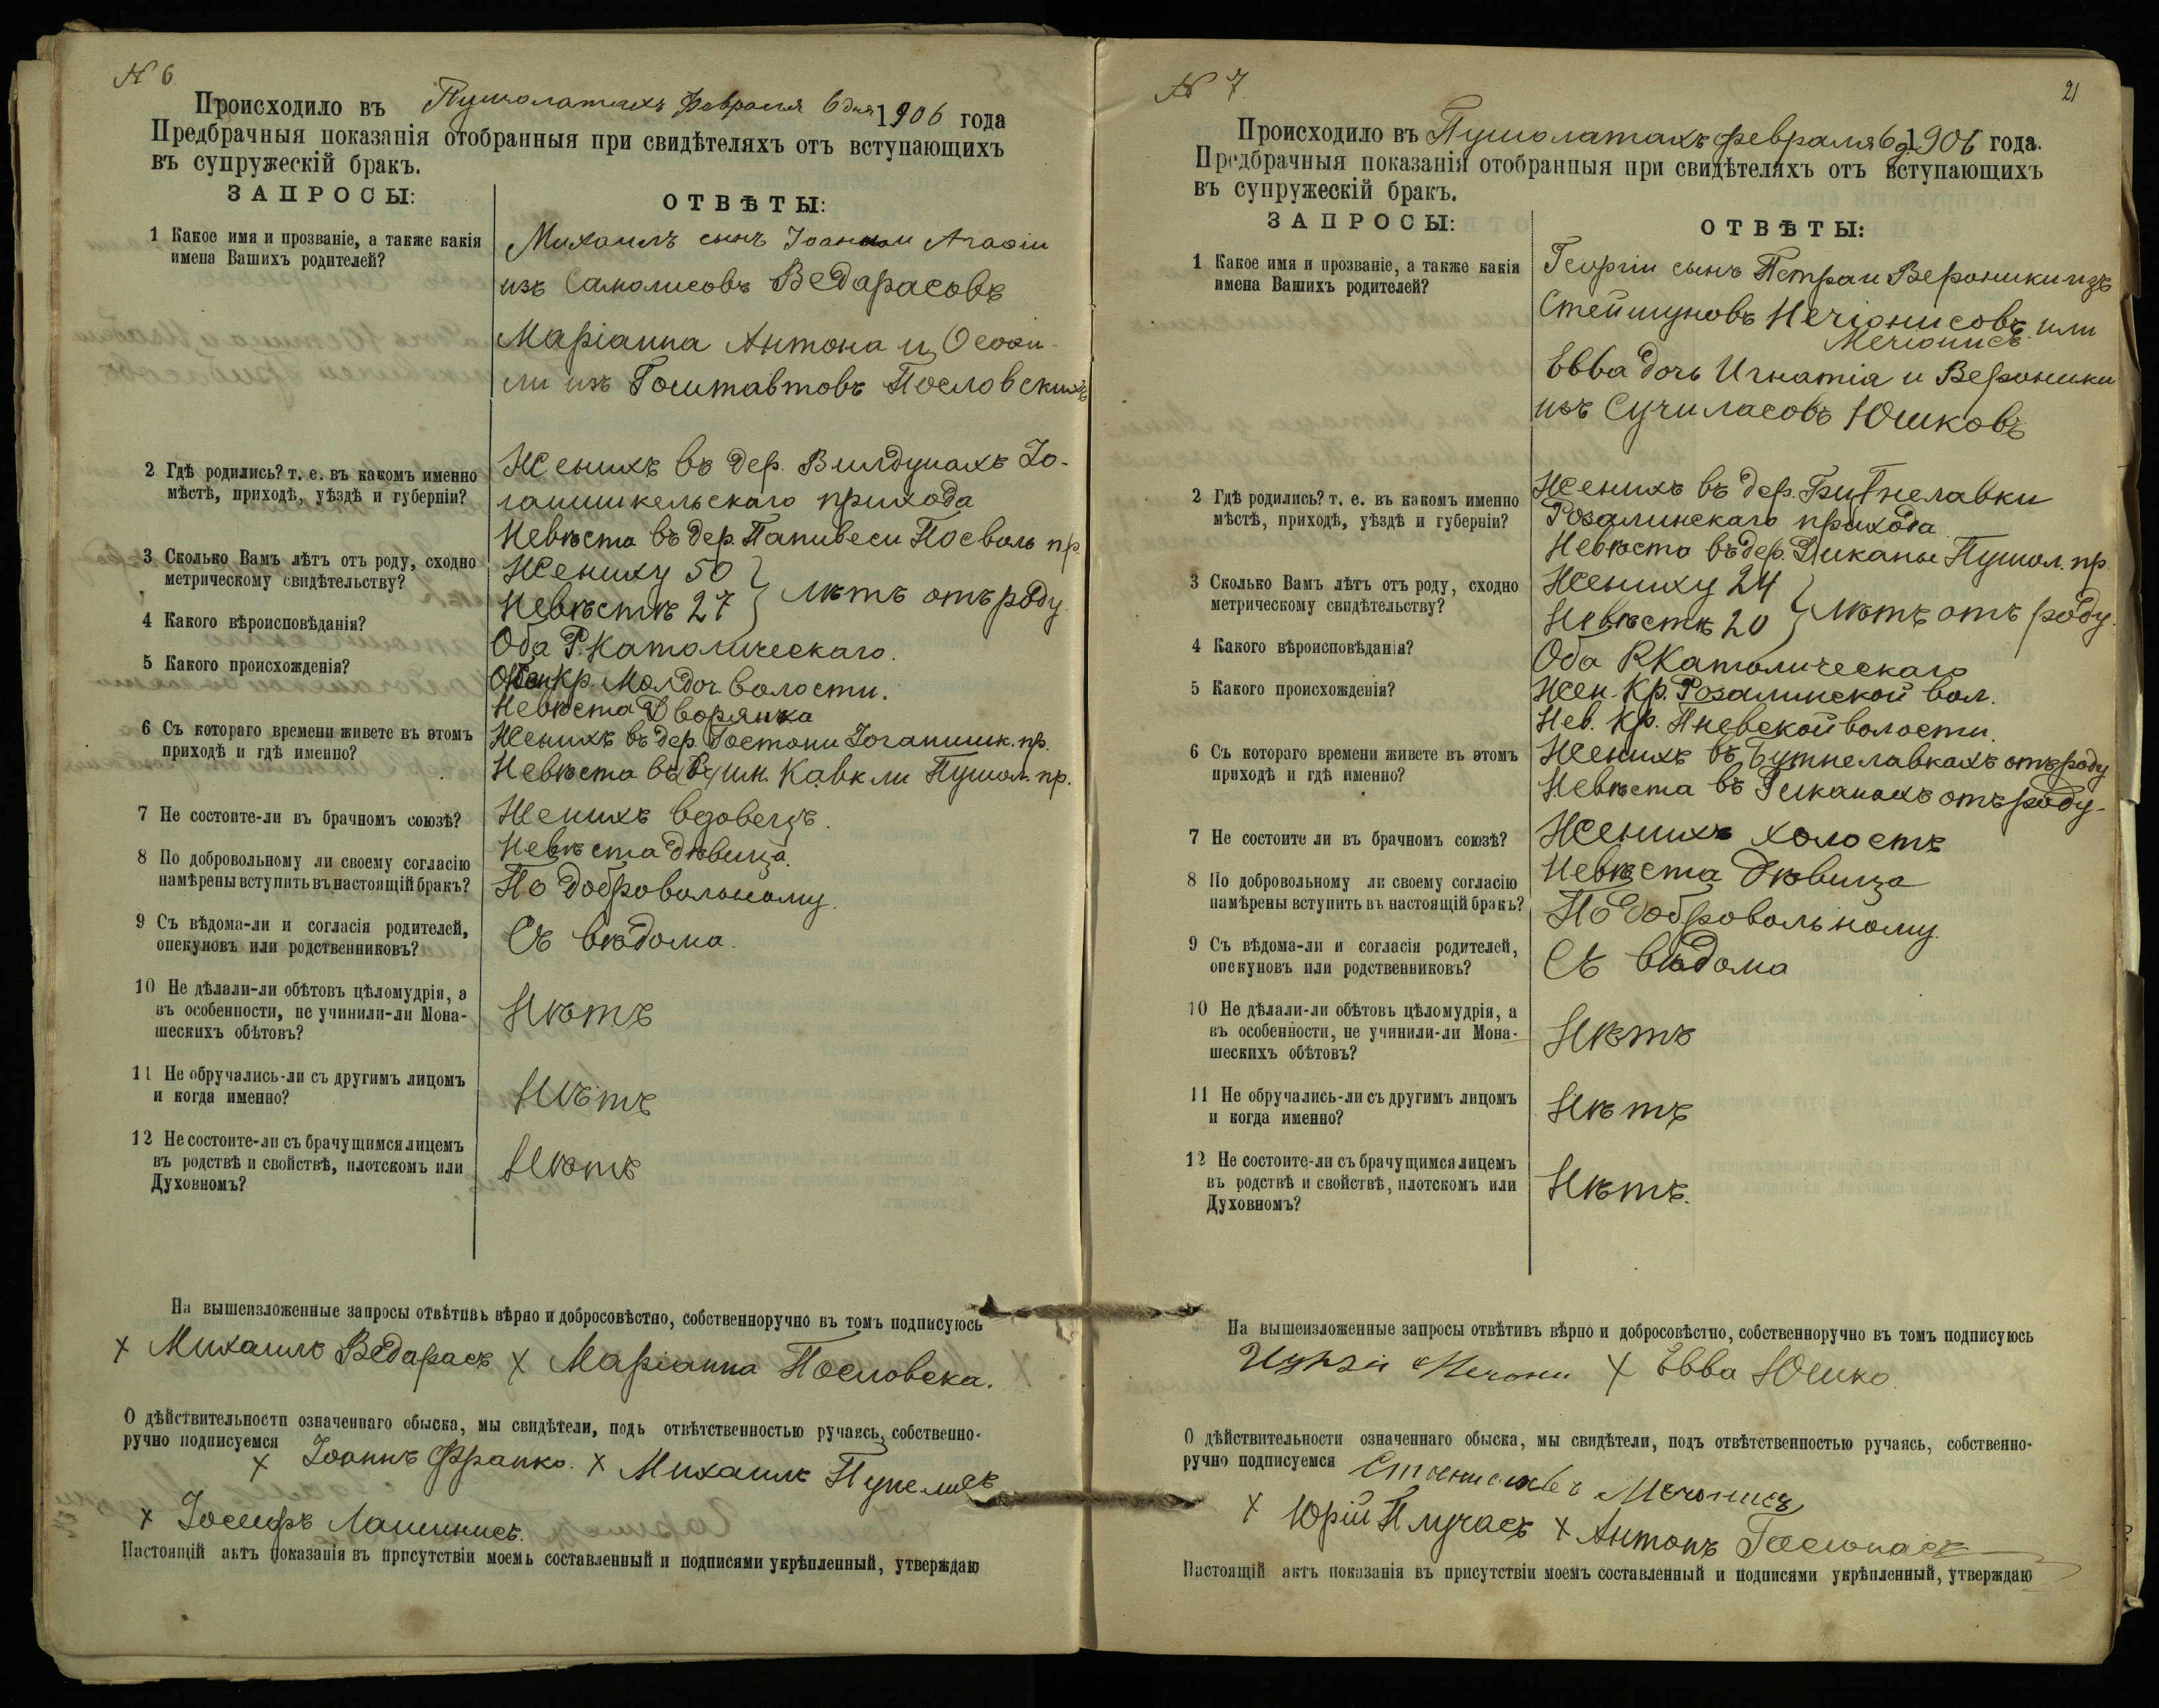 N 6.
Происходило въ Пушолатахъ Февраля 6 дня 1906 года
Предбрачныя показанія отобранныя при свидѣтеляхъ отъ вступающихъ
въ супружескій бракъ.
ЗАПРОСЫ:
ОТВѢТЫ:
1 Какое имя и прозваніе, а также какія
имена Вашихъ родителей?
Михаилъ сынъ Іоанна и Агафіи
изъ Самолисовъ Ведарасовъ
Маріанна Антона и
ли изъ Гоштавтовъ Пословскихъ
2 Гдѣ родились? т. е. въ какомъ именно
мѣстѣ, приходѣ, уѣздѣ и губерніи?
Женихъ въ дер. Вилдунахъ Іо-
ганишкельскаго прихода
Невѣста въ дер. Папивеси Посволь пр.
3 Сколько Вамъ лѣтъ отъ роду, сходно
метрическому свидѣтельству?
Жениху 50
Невѣстѣ 27 лѣтъ отъ роду.
4 Какого вѣроисповѣданія?
Оба Р. Католическаго.
5 Какого происхожденія?
Кр. Молдоч. волости.
Невѣста Дворянка
6 Съ котораго времени живете въ этомъ
приходѣ и гдѣ именно?
Женихъ въ дер. Гостони Іоганишк. пр.
Невѣста въ Кавкли Пушол. пр.
7 Не состоите-ли въ брачномъ союзѣ?
Женихъ вдовецъ.
Невѣста дѣвица.
8 По добровольному ли своему согласію
намѣрены вступить въ настоящій бракъ?
По добровольному.
9 Съ вѣдома-ли и согласія родителей,
опекуновъ или родственниковъ?
Съ вѣдома.
10 Не дѣлали-ли обѣтовъ цѣломудрія, а
въ особенности, не учинили-ли Мона-
шескихъ обѣтовъ?
Нѣтъ
11 Не обручались-ли съ другимъ лицомъ
и когда именно?
Нѣтъ
12 Не состоите-ли съ брачущимся лицемъ
въ родствѣ и свойствѣ, плотскомъ или
Духовномъ?
Нѣтъ
На вышеизложенные запросы отвѣтивъ вѣрно и добросовѣстно, собственноручно въ томъ подписуюсь
х Михаилъ Ведарасъ х Маріанна Пословска.
О дѣйствительности означеннаго обыска, мы свидѣтели, подъ отвѣтственностью ручаясь, собственно-
ручно подписуемся
х Іоаннъ Франко. х Михаилъ
х Іосифъ Лашинисъ.
Настоящій актъ показанія въ присутствіи моемъ составленный и подписями укрѣпленный, утверждаю
N 7.
21
Происходило въ Пушолатахъ февраля 6 д. 1906 года.
Предбрачныя показанія отобранныя при свидѣтеляхъ отъ вступающихъ
въ супружескій бракъ.
ЗАПРОСЫ:
ОТВѢТЫ:
1 Какое имя и прозваніе, а также какія
имена Вашихъ родителей?
Георгій сынъ Петра и Вероники изъ
Стейшуновъ Нечіонисовъ или
Мечіонисъ
Евва дочь Игнатія и Вероники
изъ Сучиласовъ Юшковъ
2 Гдѣ родились? т. е. въ какомъ именно
мѣстѣ, приходѣ, уѣздѣ и губерніи?
Женихъ въ дер.
Розалинскаго прихода
Невѣста въ дер. Диканы Пушол. пр.
3 Сколько Вамъ лѣтъ отъ роду, сходно
метрическому свидѣтельству?
Жениху 24
Невѣстѣ 20 лѣтъ отъ роду.
4 Какого вѣроисповѣданія?
Оба РКатолическаго
5 Какого происхожденія?
Жен. Кр. Розалинской вол.
Нев. Кр. Пневской волости.
6 Съ котораго времени живете въ этомъ
приходѣ и гдѣ именно?
Женихъ въ Бутнелавкахъ отъ роду
Невѣста въ отъ роду.
7 Не состоите ли въ брачномъ союзѣ?
Женихъ холостъ
Невѣста дѣвица
8 По добровольному ли своему согласію
намѣрены вступить въ настоящій бракъ?
По добровольному.
9 Съ вѣдома-ли и согласія родителей,
опекуновъ или родственниковъ?
Съ вѣдома
10 Не дѣлали-ли обѣтовъ цѣломудрія, а
въ особенности, не учинили-ли Мона-
шескихъ обѣтовъ?
Нѣтъ
11 Не обручались-ли съ другимъ лицомъ
и когда именно?
Нѣтъ
12 Не состоите-ли съ брачущимся лицемъ
въ родствѣ и свойствѣ, плотскомъ или
Духовномъ?
Нѣтъ.
На вышеизложенные запросы отвѣтивъ вѣрно и добросовѣстно, собственноручно въ томъ подписуюсь
х Евва Юшко.
О дѣйствительности означеннаго обыска, мы свидѣтели, подъ отвѣтственностью ручаясь, собственно-
ручно подписуемся Станиславъ Мечонисъ
х Юрій Плучасъ х Антонъ
Настоящій актъ показанія въ присутствіи моемъ составленный и подписями укрѣпленный, утверждаю